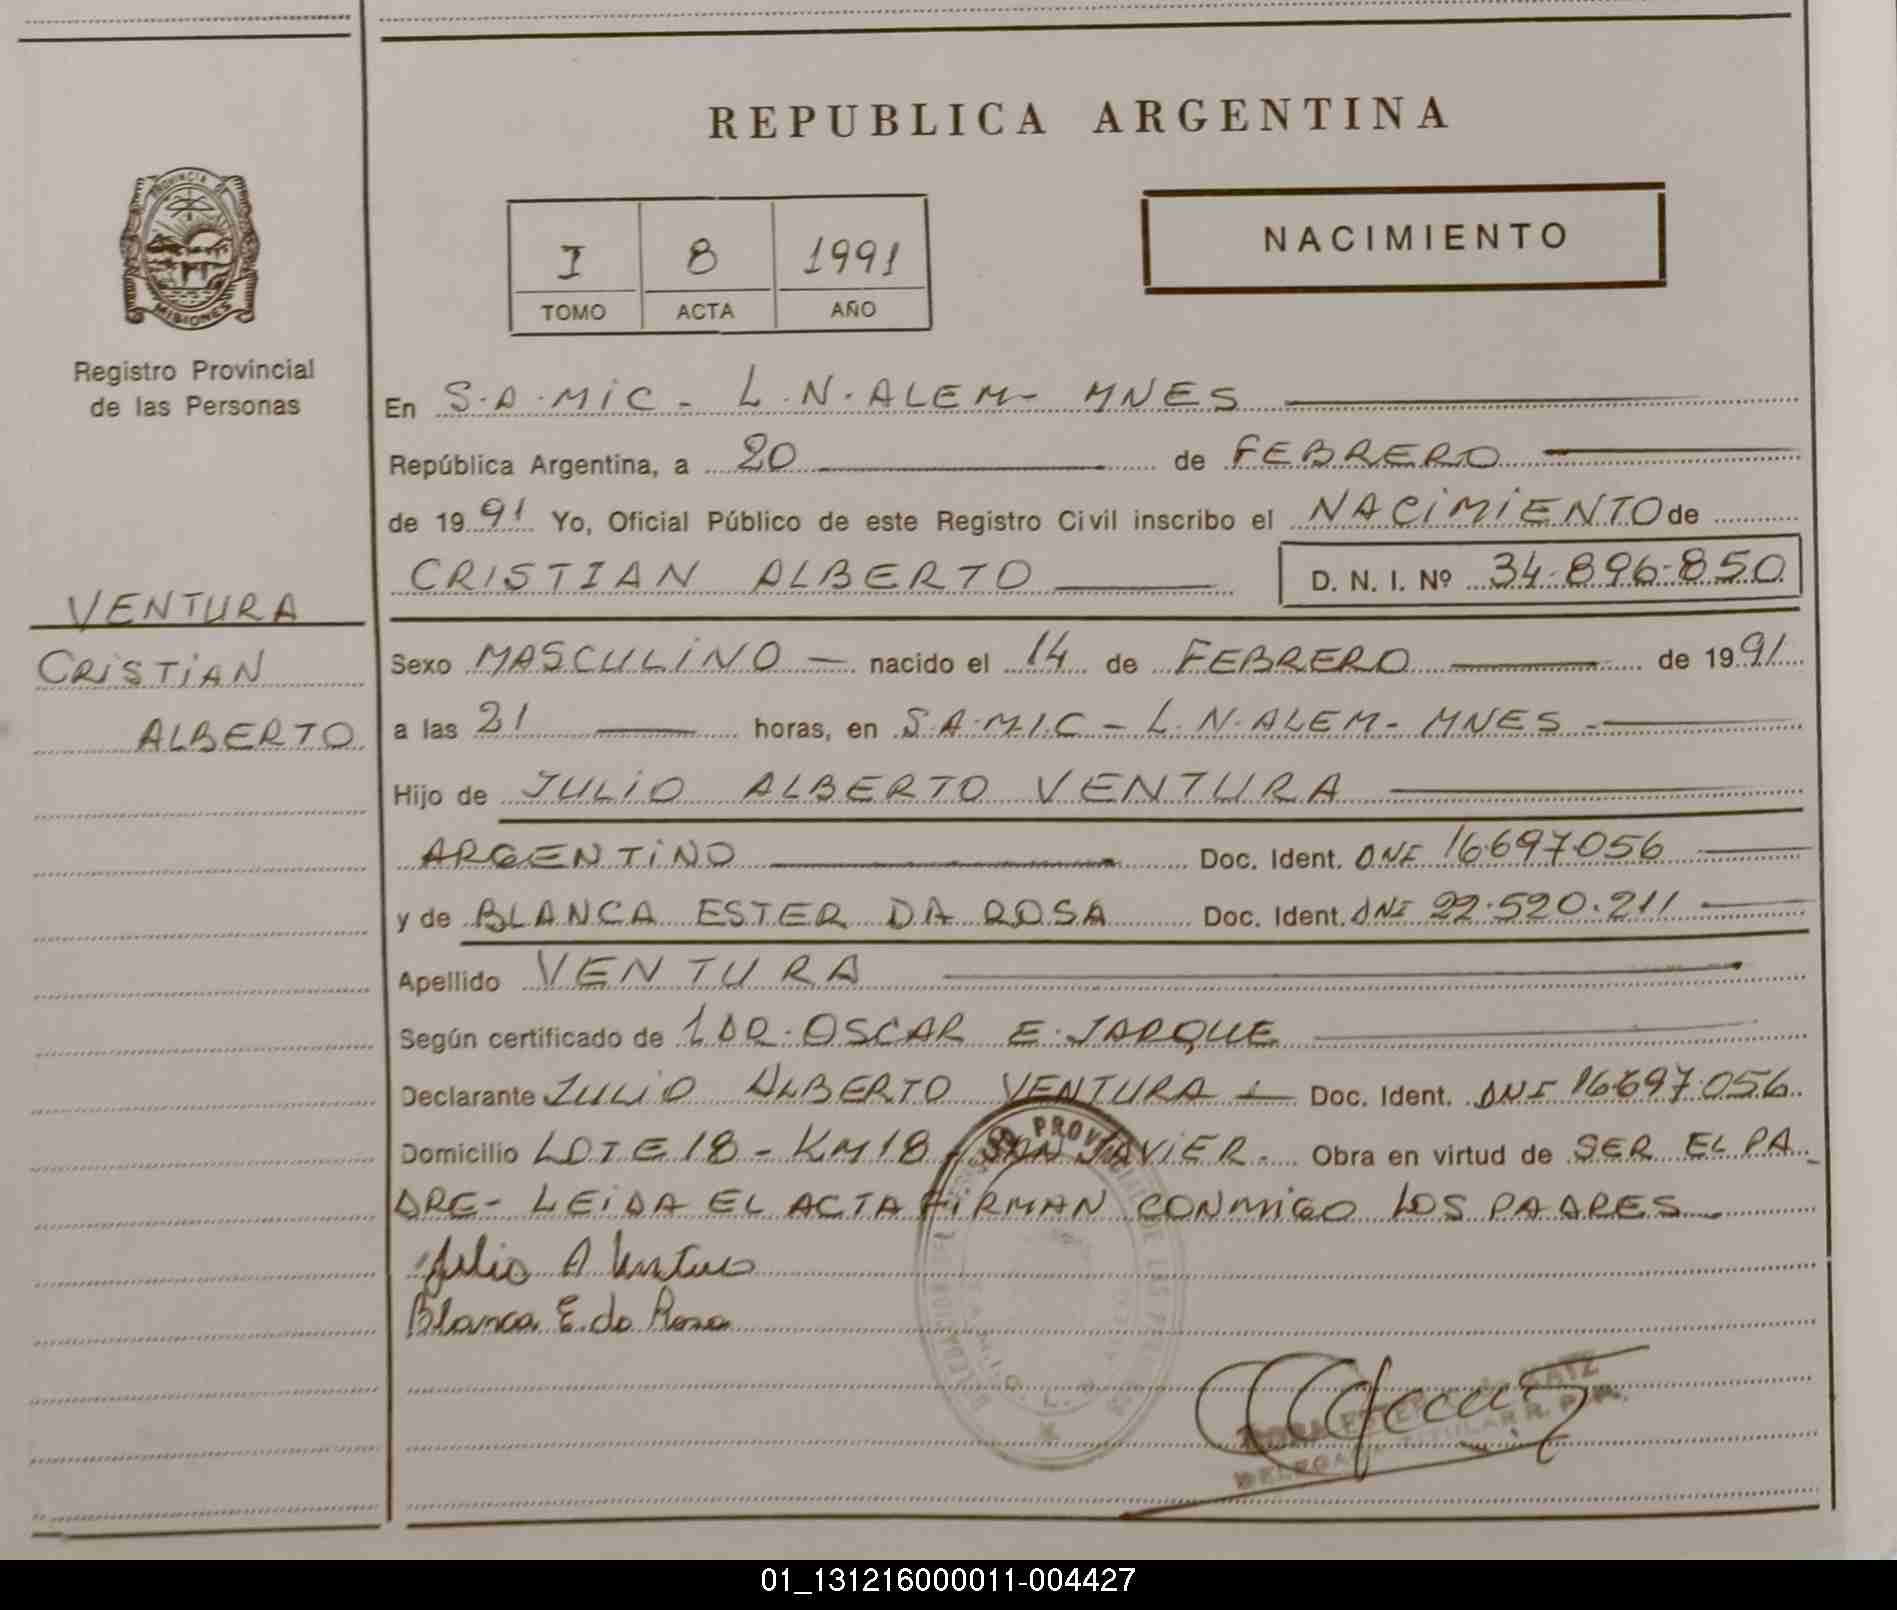 REPUBLICA ARGENTINA
PROVINCIA DE
MISIONES
Registro Provincial
de las Personas
I 8 1991
TOMO ACTA AÑO
NACIMIENTO
En S.A.MIC - L.N.ALEM - MNES
República Argentina, a 20 de FEBRERO
de 1991 Yo, Oficial Público de este Registro Civil inscribo el NACIMIENTO de
CRISTIAN ALBERTO D. N. I. Nº 34.896.850
VENTURA
CRISTIAN
ALBERTO
Sexo MASCULINO — nacido el 14 de FEBRERO de 1991
a las 21 horas, en S.A.M.I.C - L.N.ALEM - MNES -
Hijo de JULIO ALBERTO VENTURA
ARGENTINO Doc. Ident. DNI 16.697.056
y de BLANCA ESTER DA ROSA Doc. Ident. DNI 22.520.211
Apellido VENTURA
Según certificado de 1 DR. OSCAR E. JARQUE
Declarante JULIO ALBERTO VENTURA Doc. Ident. DNI 16.697.056
Domicilio LOTE 18 - KM 18 - SAN JAVIER - Obra en virtud de SER EL PA-
DRE - LEIDA EL ACTA FIRMAN CONMIGO LOS PADRES
Julio A Ventura
Blanca E. da Rosa
DE KATZ
TITULAR R. P. P.
01_131216000011-004427